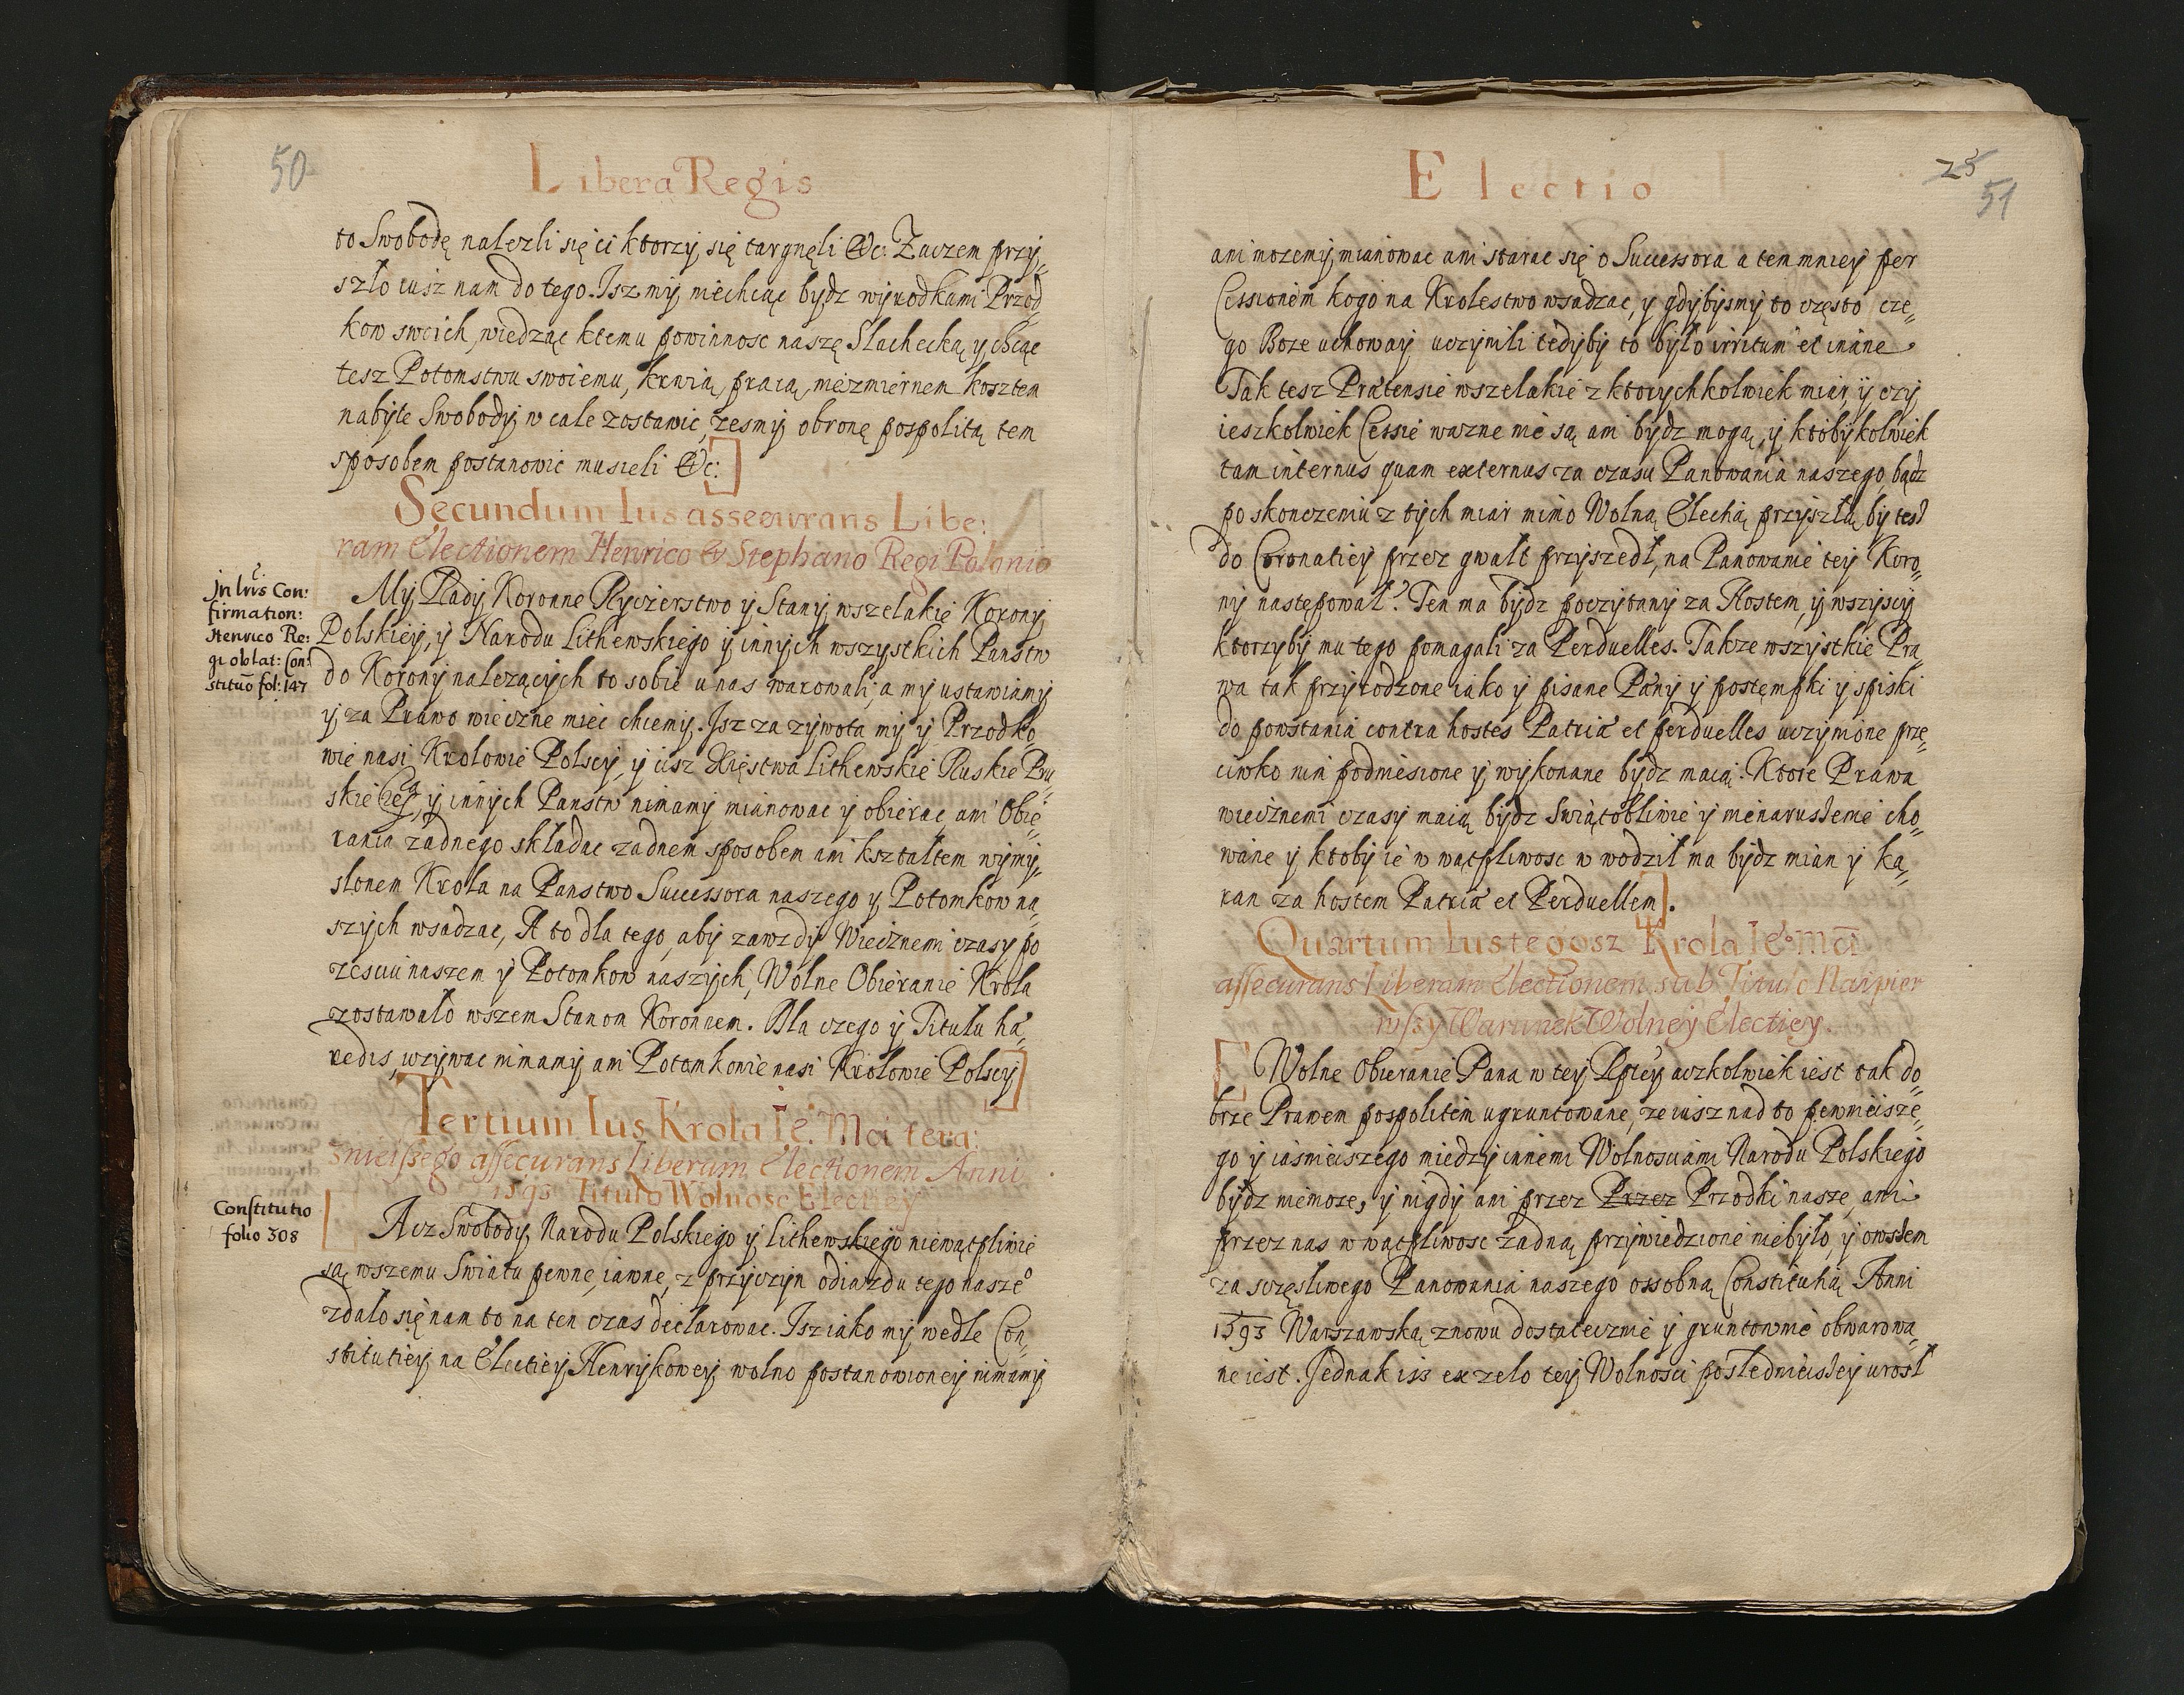 50
Libera Regis
to Swobodę nalezli się ci ktorzy się targnęli &c: Zaczem przy„
szło iusz nam do tego. Isz my niechcąc bydz wyrodkami Przod„
kow swoich, wiedząc ktemu powinnosc naszę Slachecką y chcąc
tesz Potomstwu swoiemu, krwią, pracą, niezmiernem kosztem
nabyte Swobody w cale zostawic, zesmy obronę pospolitą tem
sposobem postanowic musieli &c:]
Secundum Ius assecurans Libe:
ram Electionem Henrico & Stephano Regi Polonio
In lris Con:
firmation:
Henrico Re:
gi oblat: Con:
stituo fol: 147
My Rady Koronne Rycerstwo y Stany wszelakie Korony
Polskiey, y Narodu Lithewskiego y innych wszystkich Panstw
do Korony nalezących to sobie u nas warowali, a my ustawiamy
y za Prawo wieczne miec chcemy. Isz za zywota my y Przodko„
wie nasi Krolowie Polscy, y isz Xięstwa Lithewskie Ruskie Pru„
skie y innych Panstw nimamy mianowac y obierac ani Obie„
rania zadnego składac zadnem sposobem ani kształtem wymy„
slonem Krola na Panstwo Successora naszego y Potomkow na„
szych wsadzac, A to dla tego, aby zawzdy Wiecznemi czasy po
zesciu naszem y Potomkow naszych, Wolne Obieranie Krola
zostawało wszem Stanom Koronnem. Dla czego y Titułu hæ„
redis, uzywac nimamy ani Potomkowie nasi Krolowie Polscy]
Tertium Ius Krola Ie. Mci tera:
znieiszego assecurans Liberam Electionem Anni
1593 Titulo Wolnosc Electiey
Constitutio
folio 308
[Acz Swobody Narodu Polskiego y Lithewskiego niewątpliwie
są wszemu Swiatu pewne, iawne, z przyczyn odiazdu tego naszeo
zdało się nam to na ten czas declarowac. Isz iako my wedle Con„
stitutiey na Electiey Henrykowey wolno postanowioney nimamy
Electio
25
51
ani mozemy mianowac ani starac się o Successora a tem mniey per
Cessionem kogo na Krolestwo wsadzac, y gdybysmy to często cze„
go Boze uchoway uczynili tedyby to było irritum et inane.
Tak tesz Prætensie wszelakie z ktorychkolwiek miar y czy
ieszkolwiek Cessie wazne nie są ani bydz mogą, y ktobykolwiek
tam internus quam externus za czasu Panowania naszego, bądz
po skonczeniu z tych miar mimo Wolną Elechią przyszłą by tesz
do Coronatiey przez gwałt przyszedł, na Panowanie tey Koro„
ny następował: Ten ma bydz poczytany za Hostem, y wszyscy
ktorzyby mu tego pomagali za Perduelles. Takze wszystkie Pra„
wa tak przyrodzone iako y pisane Pany y postempki y spiski
do powstania contra hostes Patriæ et perduelles uczynione prze„
ciwko nim podniesione y wykonane bydz maią. Ktore Prawa
wiecznemi czasy maią bydz Swiątobliwie y nienaruszenie cho„
wane y ktoby ie w wątpliwosc w wodził ma bydz mian y ka„
ran za hostem Patriæ et Perduellem].
Quartum Ius tegosz Krola Ieo Mci
assecurans Liberam Electionem sub Titulo Naipier
wszy Warunek Wolney Electiey.
[Wolne Obieranie Pana w tey Rptey aczkolwiek iest tak do„
brze Prawem pospolitem ugruntowane, ze iusz nad to pewnieisze„
go y iasnieiszego miedzy innemi Wolnosciami Narodu Polskiego
bydz niemoze, y nigdy ani przez Przez Przodki nasze, ani
przez nas w wątpliwosc zadną przywiedzione niebyło, y owszem
za sczęsliwego Panowania naszego ossobną Constitutią Anni
1593 Warszawską znowu dostatecznie y gruntownie obwarowa„
ne iest. Jednak isz ex zelo tey Wolnosci posledniesszey urosł